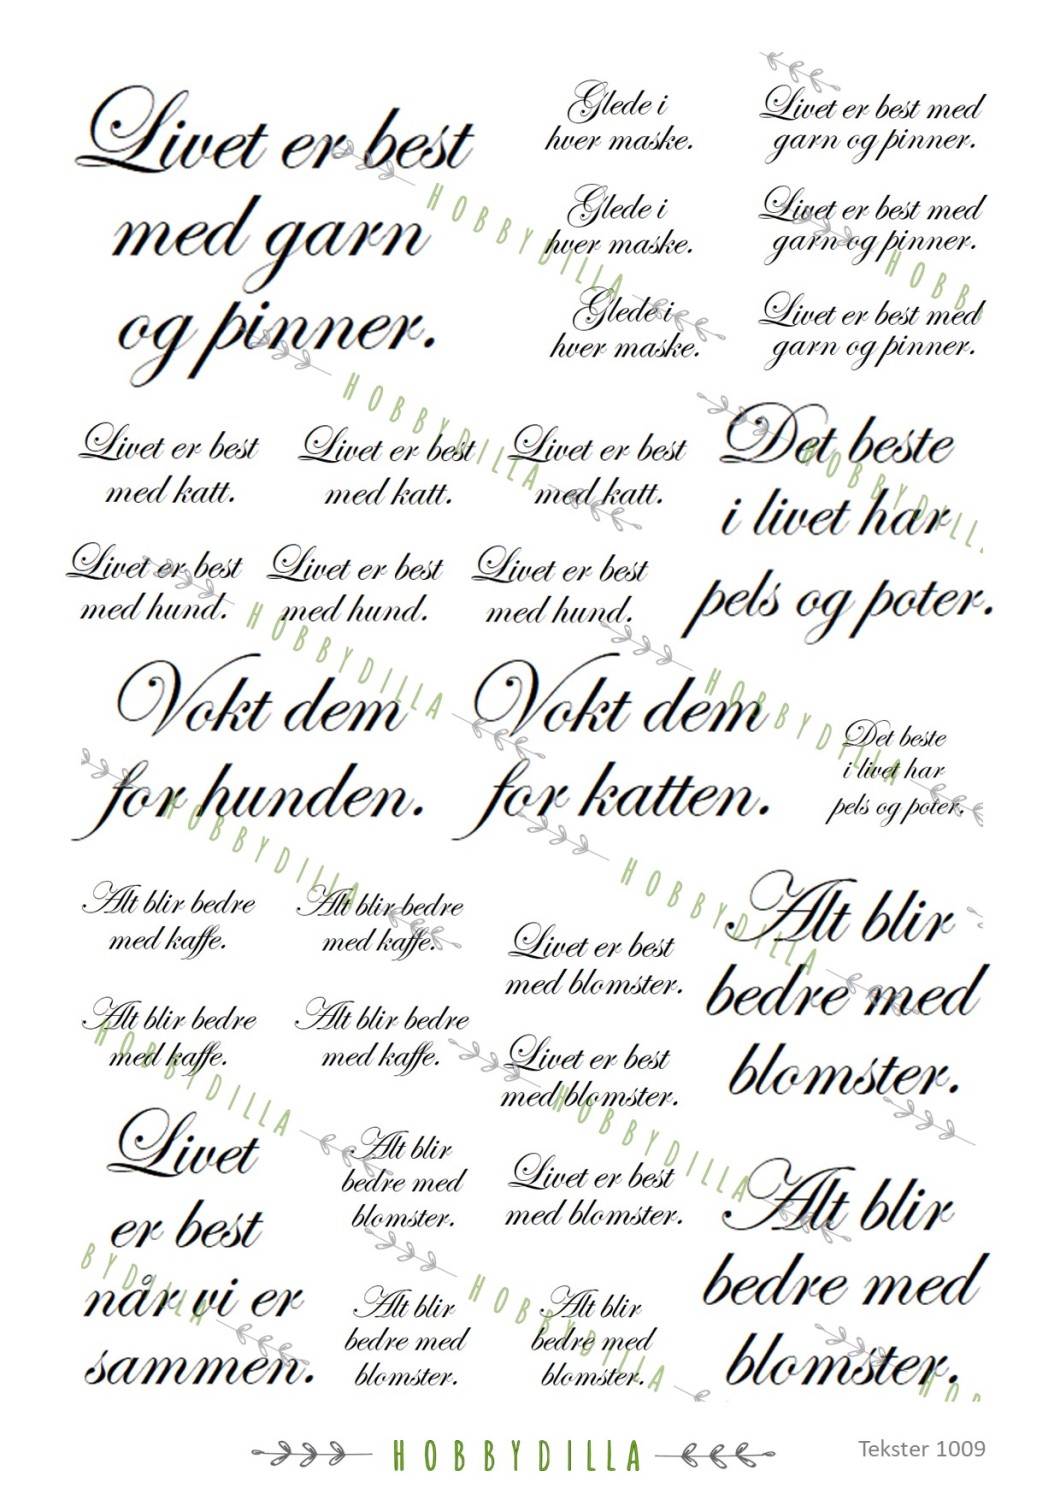 Livet er best
med garn
og pinner.
Glede i
hver maske.
Glede i
hver maske.
Glede i
hver maske.
Livet er best med
garn og pinner.
Livet er best med
garn og pinner.
Livet er best med
garn og pinner.
Livet er best
med katt.
Livet er best
med katt.
Livet er best
med katt.
Det beste
i livet har
pels og poter.
Livet er best
med hund.
Livet er best
med hund.
Livet er best
med hund.
Vokt dem
for hunden.
Vokt dem
for katten.
Det beste
i livet har
pels og poter.
Alt blir bedre
med kaffe.
Alt blir bedre
med kaffe.
Livet er best
med blomster.
Alt blir
bedre med
blomster.
Alt blir bedre
med kaffe.
Alt blir bedre
med kaffe.
Livet er best
med blomster.
Livet
er best
når vi er
sammen.
Alt blir
bedre med
blomster.
Livet er best
med blomster.
Alt blir
bedre med
blomster.
Alt blir
bedre med
blomster.
Alt blir
bedre med
blomster.
HOBBYDILLA
HOBB
HOBBYDILLA
HOBBYDILL
HOBBYDILLA
HOBBYDILLA
HOBBYDILLA
HOBBYDILLA
HOBBYDILLA
HOBBYDILLA
BYDILLA
HOBBYDILLA
HOB
HOBBYDILLA
Tekster 1009